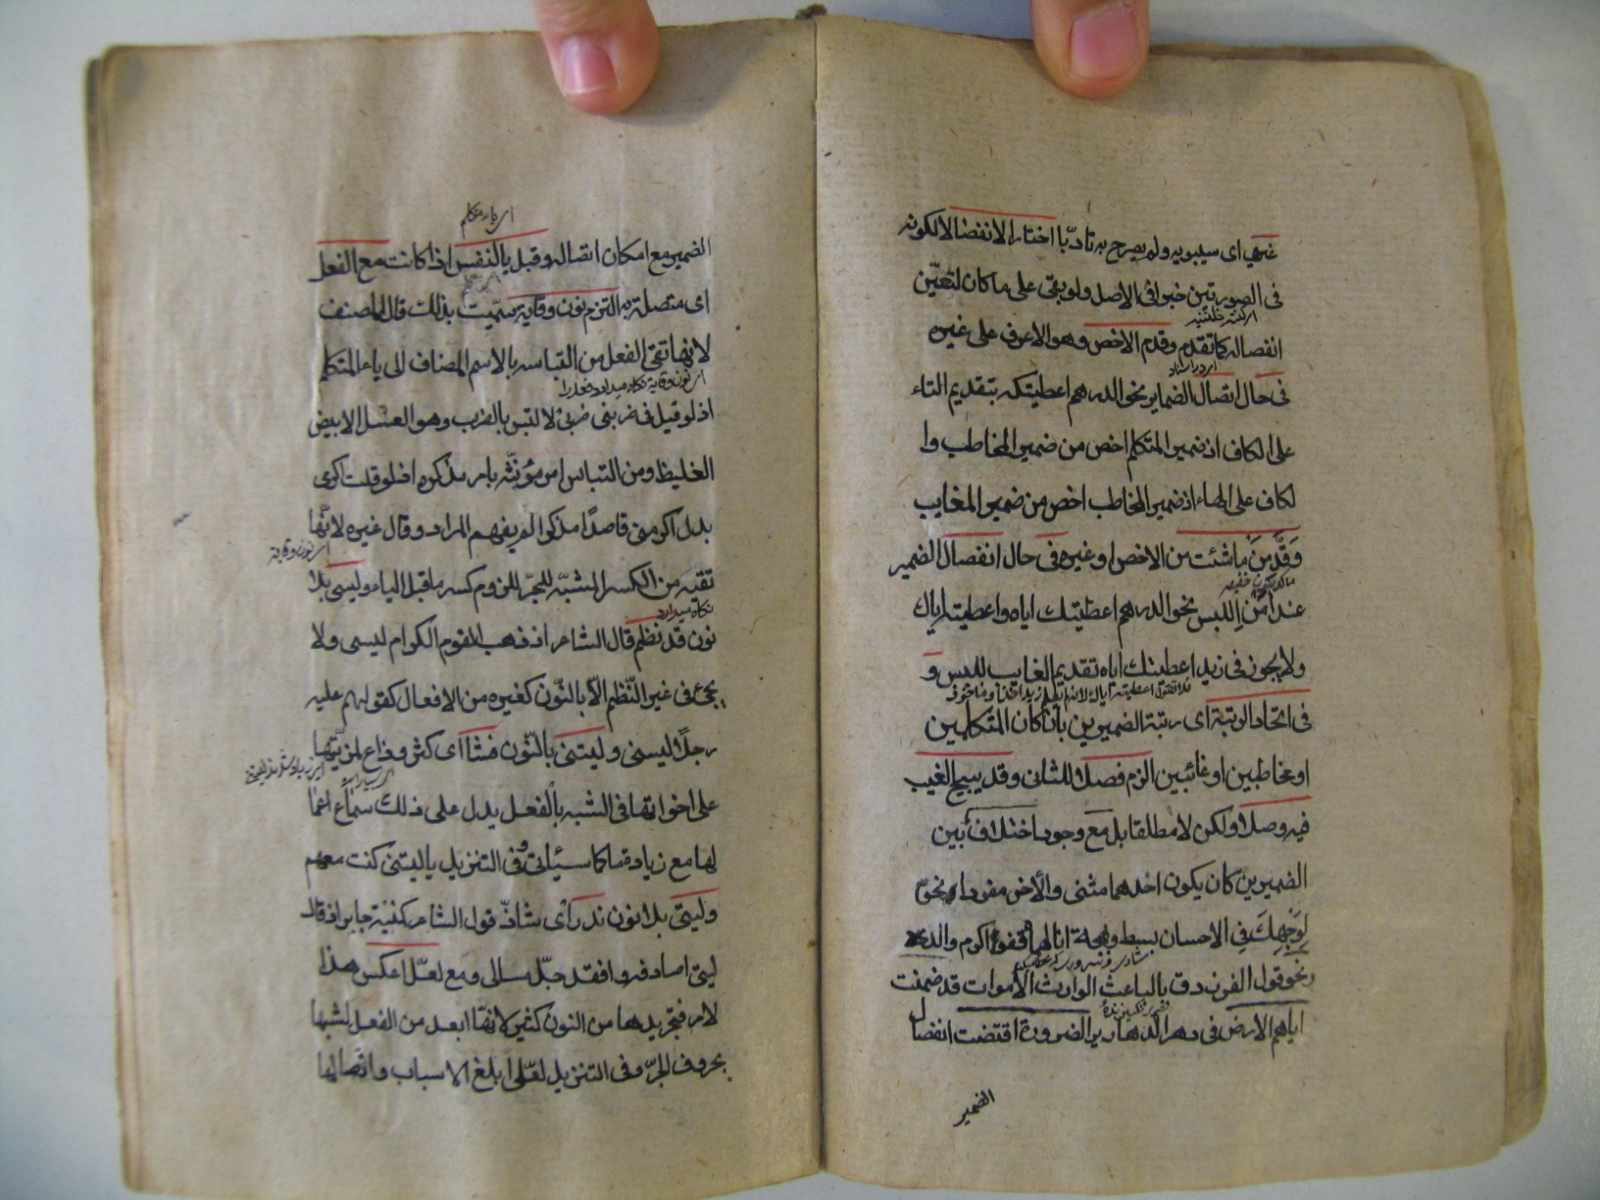 غيري اى سيبويه ولم يصرح به تادّبا اختار الانفصالا لكونه
فى الصورتين خبرا فى الاصل ولو بقى على ما كان لتعيّن
انفصاله كما تقدم وقدم الاخص وهو الاعرف على غيره
فى حال اتصال الضماير نحو الدرهم اعطيتكه بتقديم التاء
على الكاف اذ ضمير المتكلم اخص من ضمير المخاطب وا
لكاف على الهاء اذ ضمير المخاطب اخص من ضمير الغايب
وقدّمن ما شئت من الاخص او غيره فى حال انفصال الضمير
عند امن اللبس نحو الدرهم اعطيتك اياه واعطيته اياك
ولا يجوز فى زيد اعطيتك اياه تقديم الغايب للبس و
فى اتحاد الرتبة اى رتبة الضميرين بان كان المتكلمين
او مخاطبين او غائبين الزم فصلا للثانى وقد يبيح الغيب
فيه وصلا ولكن لا مطلقا بل مع وجود اختلاف ما بين
الضميرين كان يكون احدهما مثنى والآخر مفردا نحو
لوجهك فى الاحسان بسط وبهجة انالهماه قفو اكرم والد
ونحو قول الفرزدق بالباعث الوارث الاموات قد ضمنت
اياهم الارض فى دهر الدهارير الضرورة اقتضت انفصال
الضمير
اى ياء متكلم
الضمير مع امكان اتصاله وقبل يا النفس اذا كانت مع الفعل
اى متصلة به التزم نون وقاية سمّيت بذلك قال المصنف
لانها تقى الفعل من التباسه بالاسم المضاف الى ياء المتكلم
اذ لو قيل فى ضربنى ضربى لا لتبس بالضرب وهو العسل الابيض
الغليظ ومن التباس امر مؤنثه بامر مذكره اذ لو قلت اكرمى
بدل اكرمنى قاصدا مذكرا لم يفهم المراد وقال غيره لانّها
اى نون وقاية
تقيه من الكسر المشبّه للجرّ للزوم كسر ما قبل الياء وليسى بلا
نون قد نظم قال الشاعر اذ ذهب القوم الكرام ليسى ولا
يجئ فى غير النّظم الّا بالنّون كغيره من الافعال كقولهم عليه
رجلا ليسنى وليتنى بالنّون فشا اى كثر وذاع لمزيّتها
على اخواتها فى الشبه بالفعل يدل على ذلك سماع اعما
لها مع زيادة ما كما سيأتى وفى التنزيل يا ليتنى كنت معهم
وليتى بلا نون ندرا اى شاذّ قول الشاعر كمنية جابر اذ قال
ليتى اصادفه وافقد جلّ مالى ومع لعلّ اعكس هذا
لامر فتجريدها من النون كثير لانها ابعد من الفعل لشبهها
بحروف الجرّ وفى التنزيل لعلّى ابلغ الاسباب واتصالها